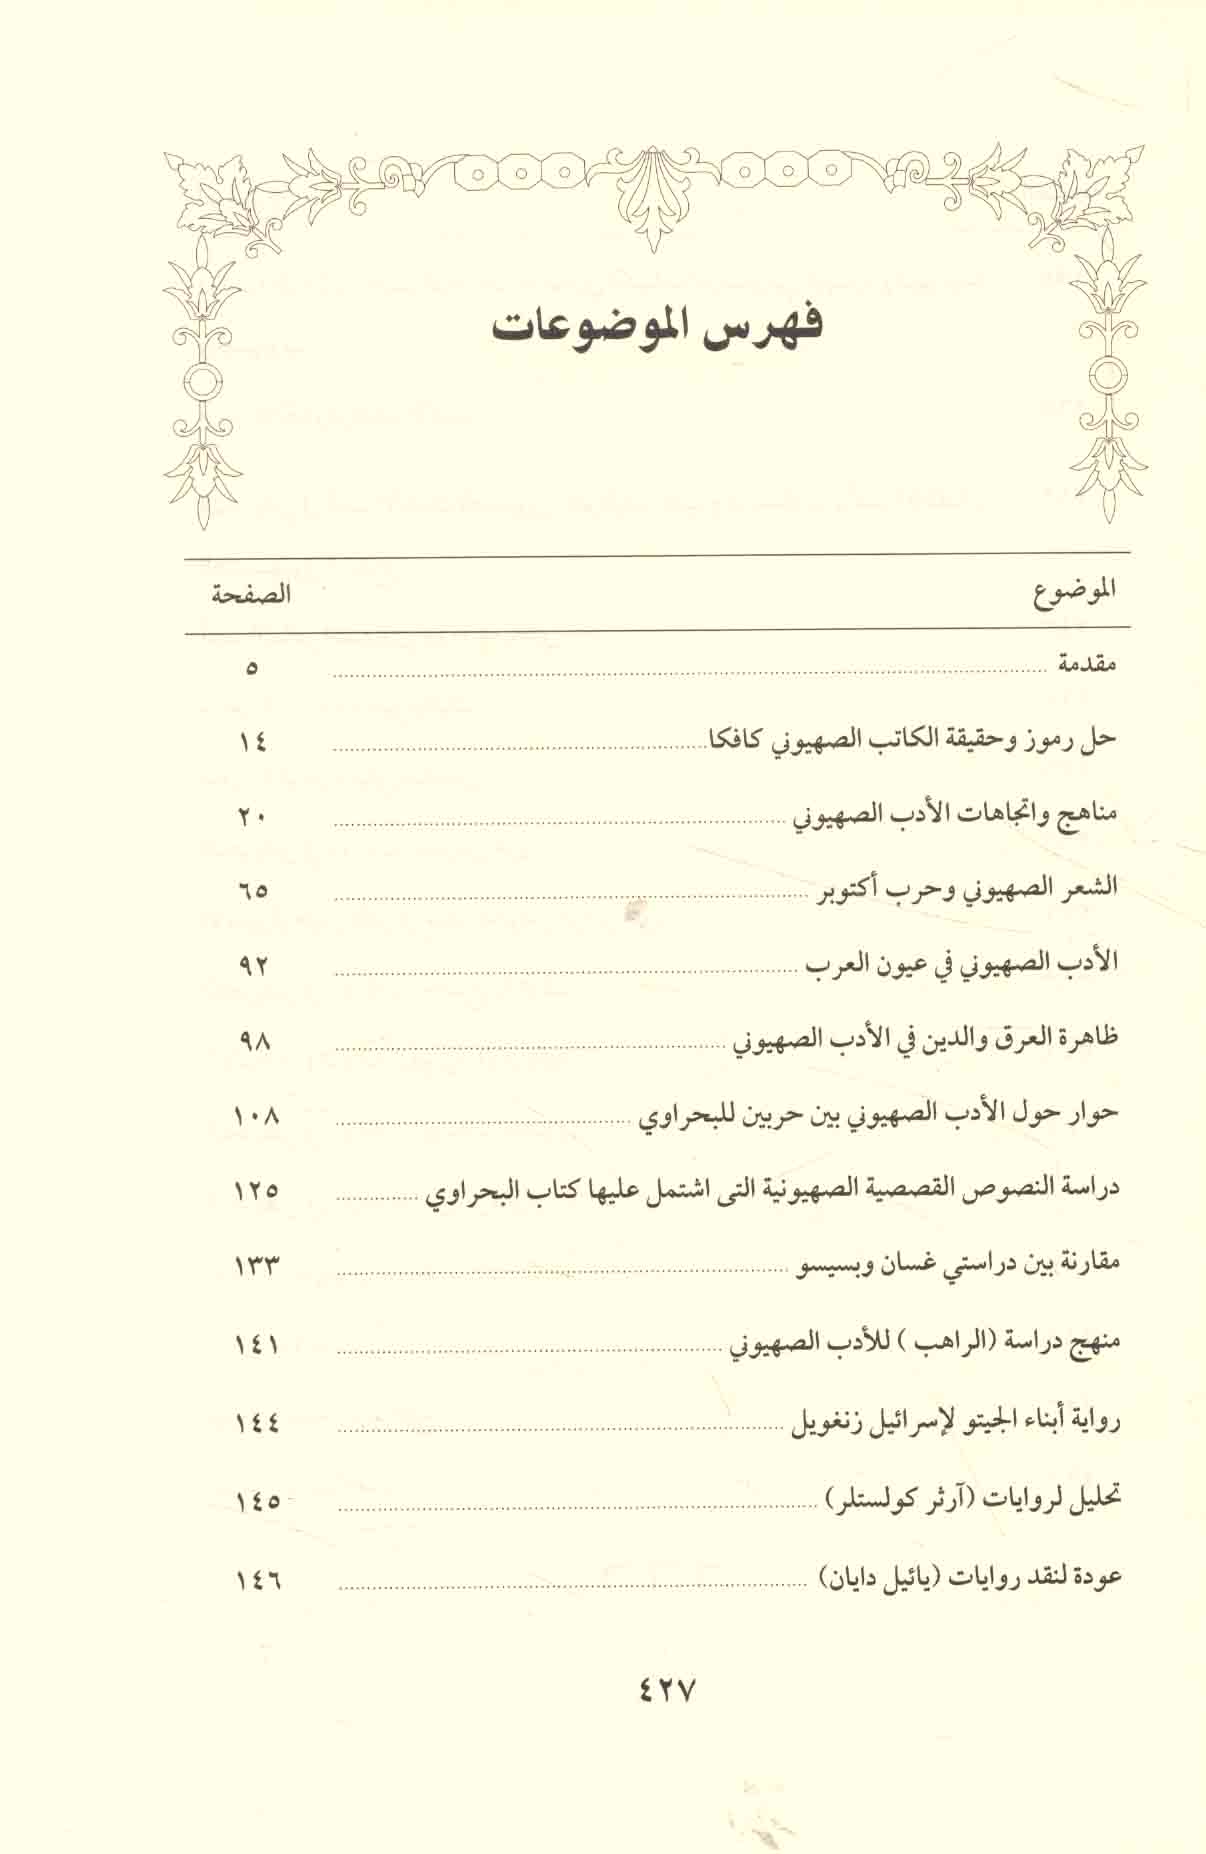 فهرس الموضوعات
الموضوع الصفحة
مقدمة ٥
حل رموز وحقيقة الكاتب الصهيوني كافكا ١٤
مناهج واتجاهات الأدب الصهيوني ٢٠
الشعر الصهيوني وحرب أكتوبر ٦٥
الأدب الصهيوني في عيون العرب ٩٢
ظاهرة العرق والدين في الأدب الصهيوني ٩٨
حوار حول الأدب الصهيوني بين حربين للبحراوي ١٠٨
دراسة النصوص القصصية الصهيونية التى اشتمل عليها كتاب البحراوي ١٢٥
مقارنة بين دراستي غسان وبسيسو ١٣٣
منهج دراسة (الراهب) للأدب الصهيوني ١٤١
رواية أبناء الجيتو لإسرائيل زنغويل ١٤٤
تحليل لروايات (آرثر كولستلر) ١٤٥
عودة لنقد روايات (يائيل دايان) ١٤٦
٤٢٧